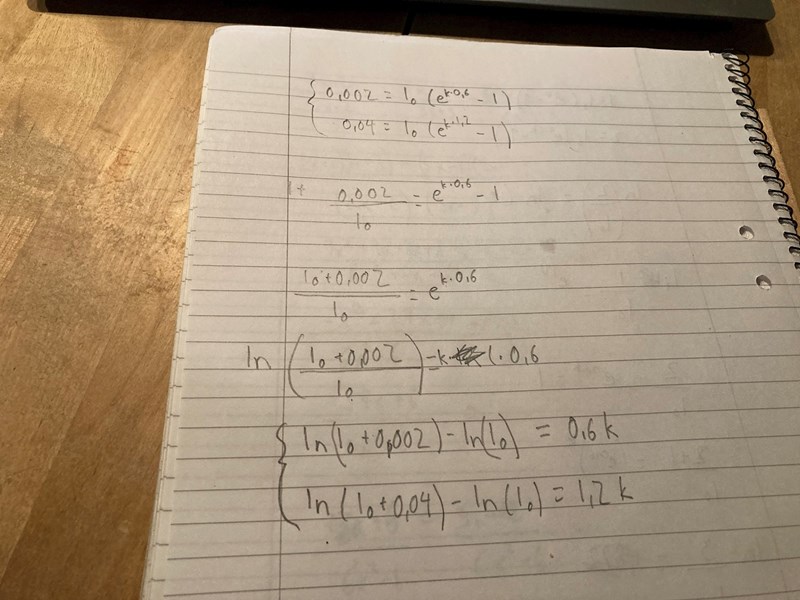 0,002 = I₀ (e^k·0,6 - 1)
0,04 = I₀ (e^k·1,2 - 1)
1+ 0,002/I₀ = e^k·0,6 - 1
I₀+0,002/I₀ = e^k·0,6
ln (I₀+0,002/I₀) = k· 1·0,6
ln(I₀+0,002) - ln(I₀) = 0,6k
ln(I₀+0,04) - ln(I₀) = 1,2k